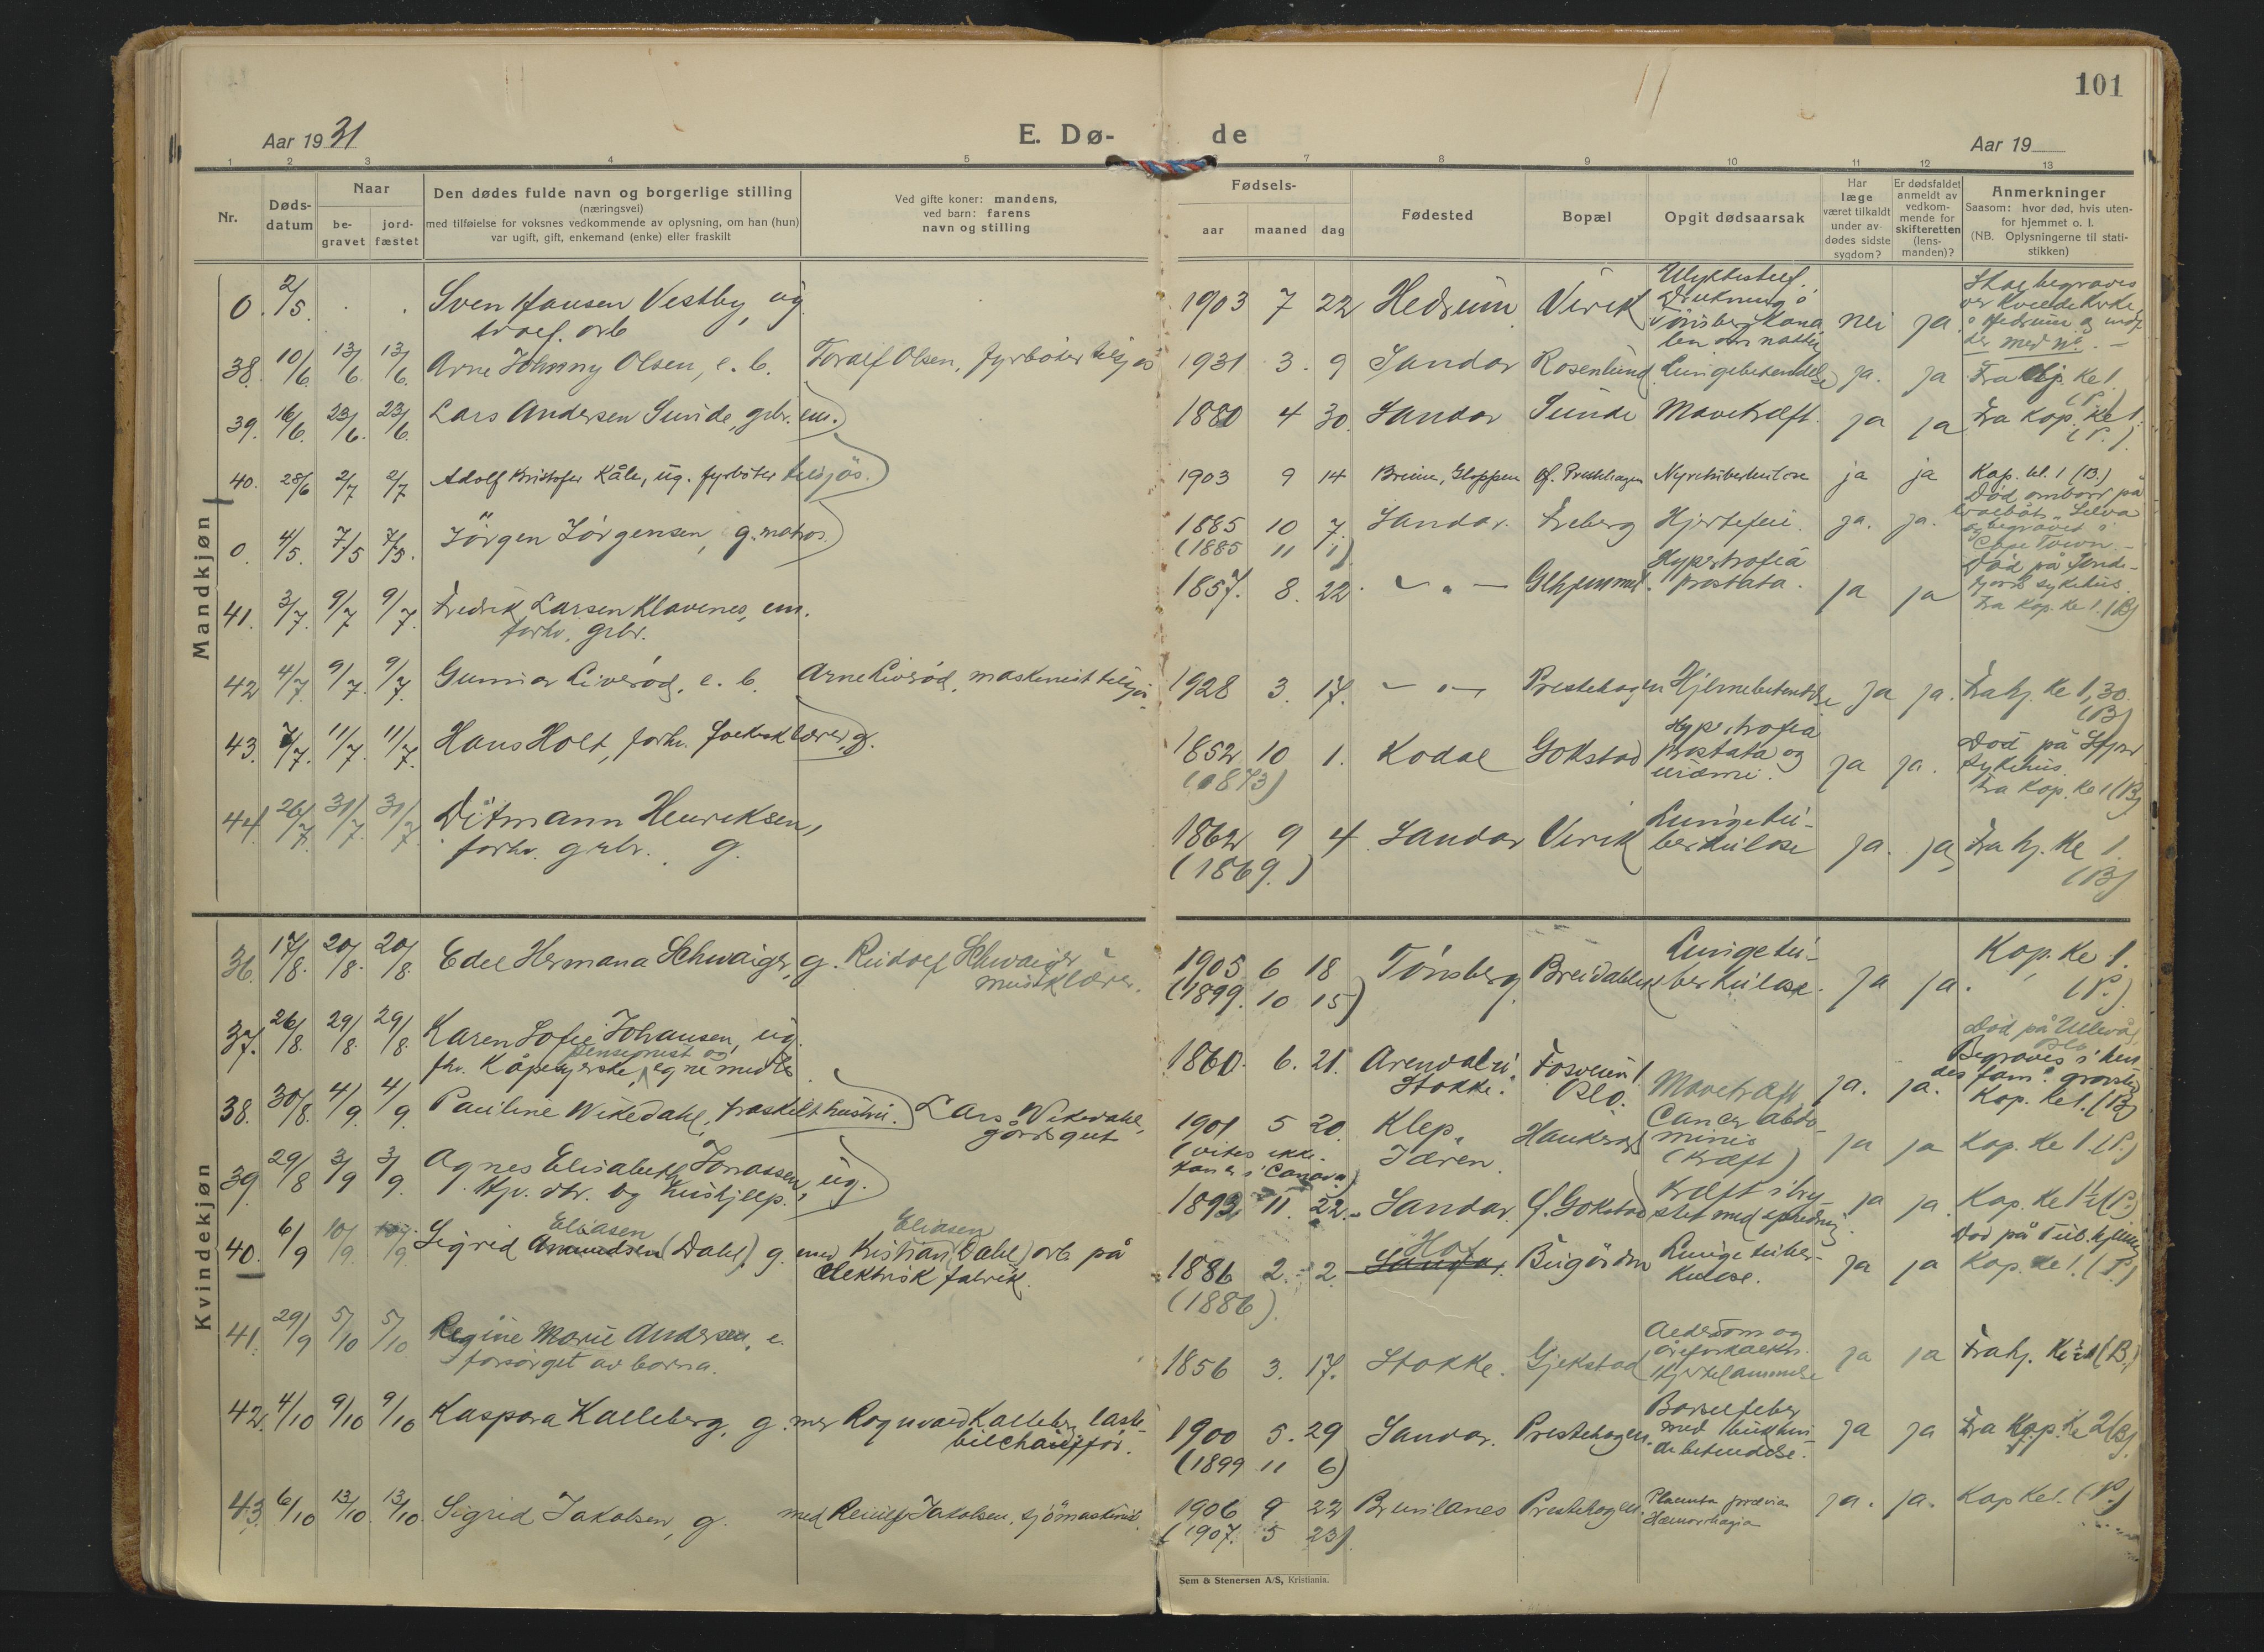 101
Aar 1931
E. Dø-de
Aar 19
1 2 3 4 5 7 8 9 10 11 12 13
Nr.
Døds-datum
Naar
be-gravet
jord-fæstet
Den dødes fulde navn og borgerlige stilling
(næringsvei)
med tilføielse for voksnes vedkommende av oplysning, om han (hun)
var ugift, gift, enkemand (enke) eller fraskilt
Ved gifte koner: mandens,
ved barn: farens
navn og stilling
Fødsels-
aar maaned dag
Fødested
Bopæl
Opgit dødsaarsak
Har
læge
været tilkaldt
under av-
dødes sidste
sygdom?
Er dødsfaldet
anmeldt av
vedkom-
mende for
skifteretten
(lens-
manden)?
Anmerkninger
Saasom: hvor død, hvis uten-
for hjemmet o. l.
(NB. Oplysningerne til stati-
stikken)
Mandkjøn
0. 2/5. Sven Hansen Vestby, ug. 1903 7 22 Hedrum Virik nei ja
38. 10/6 13/6 13/6. Arne Johnny Olsen, e. b. Toralf Olsen, fyrbøter tilsjøs 1931 3. 9 Sandar Rosenlund Lungebetendelse ja. ja
39. 16/6. 23/6. 23/6. Lars Andersen Sunde, grbr. em. 1880 4 30. Sandar Sunde Mavekræft. ja ja Fra Kap. Kl 1. (P.)
40. 28/6 2/7 2/7 Adolf Kristofer Kåle, ug. fyrbøter tilsjøs. 1903 9 14 Breim, Gloppen Nyretuberkulose ja ja Kap. kl. 1 (B.)
0. 4/5. 7/5 7/5. Jörgen Jörgensen, g. matros. 1885 10 7. Sandar. Freberg Hjertefeil. ja. ja.
Død ombord på
begravet i
Cape Town.
(1885 11 1)
41. 3/7. 9/7 9/7. Fredrik Larsen Klavenes, em. 1857. 8. 22. — " — Hypertrofia
prostata. ja ja
forhv. grbr.
42 4/7 9/7. 9/7. Gunnar Liverød, e. b. Arne Liverød, maskinist tilsjøs. 1928 3. 17. — " — Prestehagen Hjernebetendelse ja ja.
43. 7/7. 11/7. 11/7. Hans Holt, forhv. g. 1852 10 1. Kodal Gokstad
Hypertrofia
prostata og
urämi. ja ja.
(1873)
44. 26/7. 31/7. 31/7. Ditmann Henriksen, 1862 9 4 Sandar Virik Lungetu-
berkulose ja. ja Fra hj. Kl 1. (B)
forhv. grbr. g.
(1869.)
Kvindekjøn
36. 17/8. 20/8. 20/8. Edel Hermana Schwaiger, g. Rudolf Schwaiger
musiklærer. 1905 6 18 Tønsberg Lungetu-
berkulose. ja ja. Kap. Kl 1. (P.)
(1899. 10 15)
37. 26/8. 29/8. 29/8. Karen Sofie Johansen, ug.
pensionist og
fhv. Kåpesyerske, egne midler 1860. 6. 21. Arendal i
Stokke.
Oslo. Mavekræft ja. ja.
Død på Ullevål
Oslo
Begraves i hen-
des fam. gravsted
Kap. kl 1. (B)
38. 30/8. 4/9. 4/9. Pauline Wikedahl, fraskilt hustru. Lars Wikedahl,
gårdsgut 1901 5 20. Klep,
Jæren. Haukerød Cancer abdo-
minis
(Kræft) ja ja Kap. Kl 1. (P.)
(vites ikke.
han er i Canada)
39. 29/8 3/9 3/9. Agnes Elisabeth Jonassen, ug. 1893 11. 22. Sandar. Ø. Gokstad Kræft i bry-
stet med spredning. ja ja.
hjv. dtr. og hushjelp.
40. 6/9 10/9. 10/9. Sigrid Amundsen Eliasen (Dahl) g. med Kristian Eliasen (Dahl) arb på
elektrisk fabrik. 1886 2. 2. Sandar. Hof Bugården Lungetuber-
kulose. ja ja
Kap. kl 1. (P.)
(1886).
41. 29/9 5/10 5/10 Regine Marie Andersen, e.
forsörget av barna. 1856 3. 17. Stokke. Gjekstad Alderdom og
åreforkalkn.
Hjertelammelse ja ja
42. 4/10 9/10 9/10 Kaspara Kalleberg, g. med Ragnvald Kalleberg, laste-
bilchauffør. 1900 5. 29 Sandar. Prestehagen. Barselfeber
med bukhin-
debetendelse. ja ja Fra Kap. Kl 2 (B).
(1899 11 6)
43. 6/10 13/10. 13/10. Sigrid Jakobsen, g. med Jakobsen, sjömaskinist. 1906 9 22 Brunlanes Prestehagen. Placenta prævia
Hæmorrhagia ja. ja. Kap Kl 1. (P.)
(1907. 5 23)
Sem & Stenersen A/S, Kristiania.